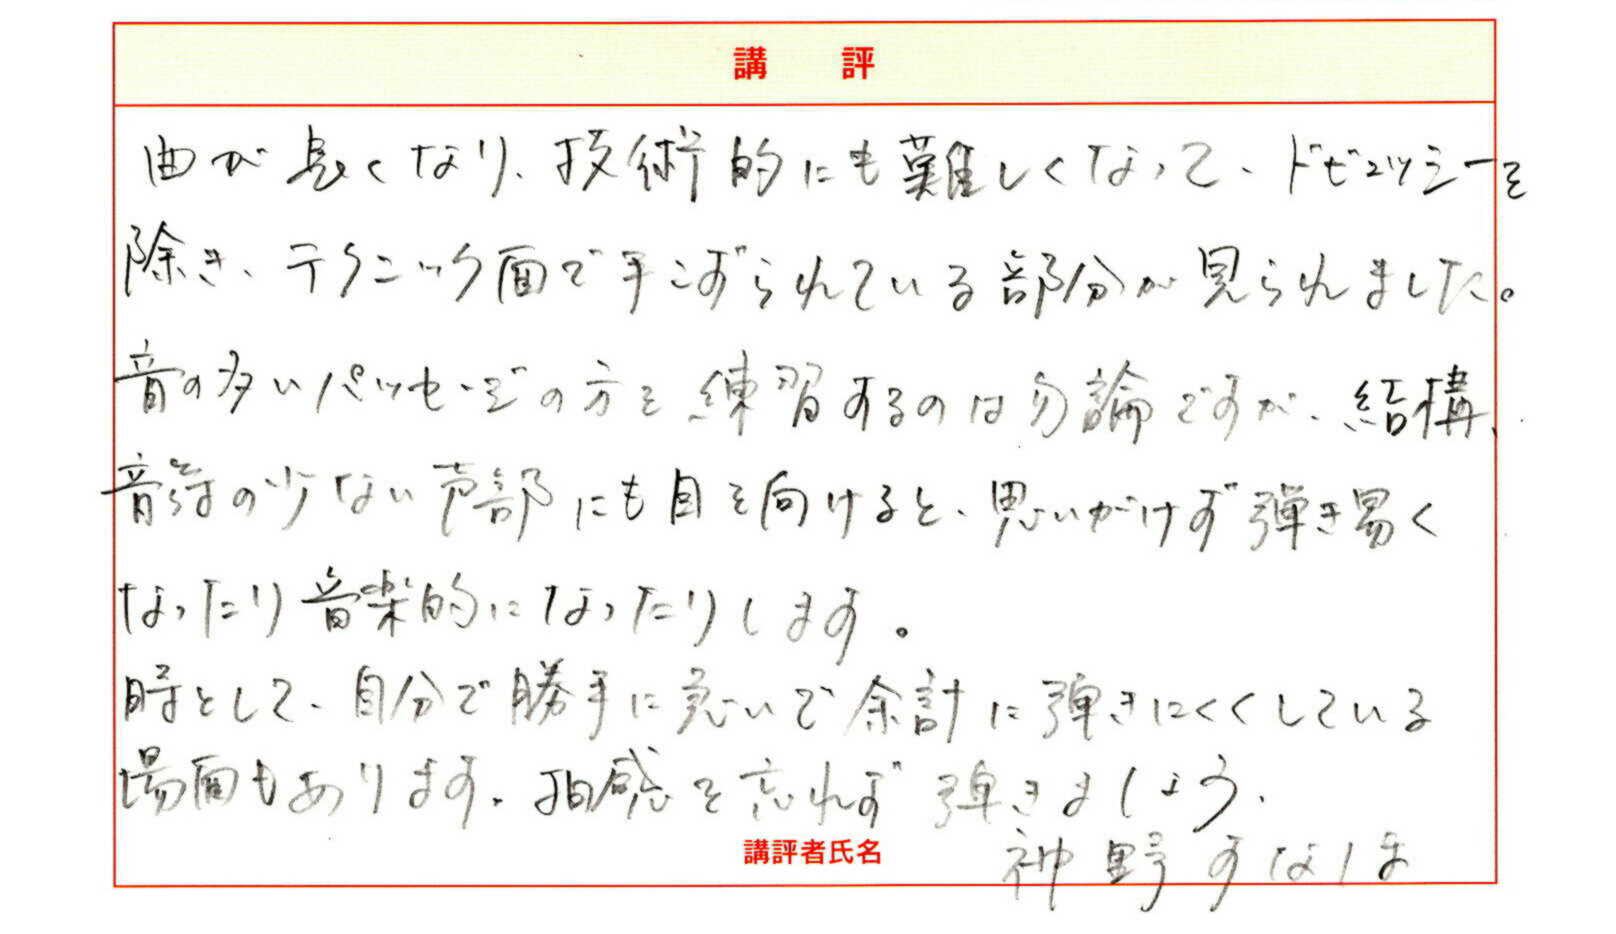 講 評
曲が長くなり、技術的にも難しくなって、ドビュッシーを
除き、テクニック面で手こずられている部分が見られました。
音の多いパッセージの方を練習するのは勿論ですが、結構、
音符の少ない声部にも目を向けると、思いがけず弾き易く
なったり音楽的になったりします。
時として、自分で勝手に急いで余計に弾きにくくしている
場面もあります。拍感を忘れず弾きましょう。
講評者氏名
神野